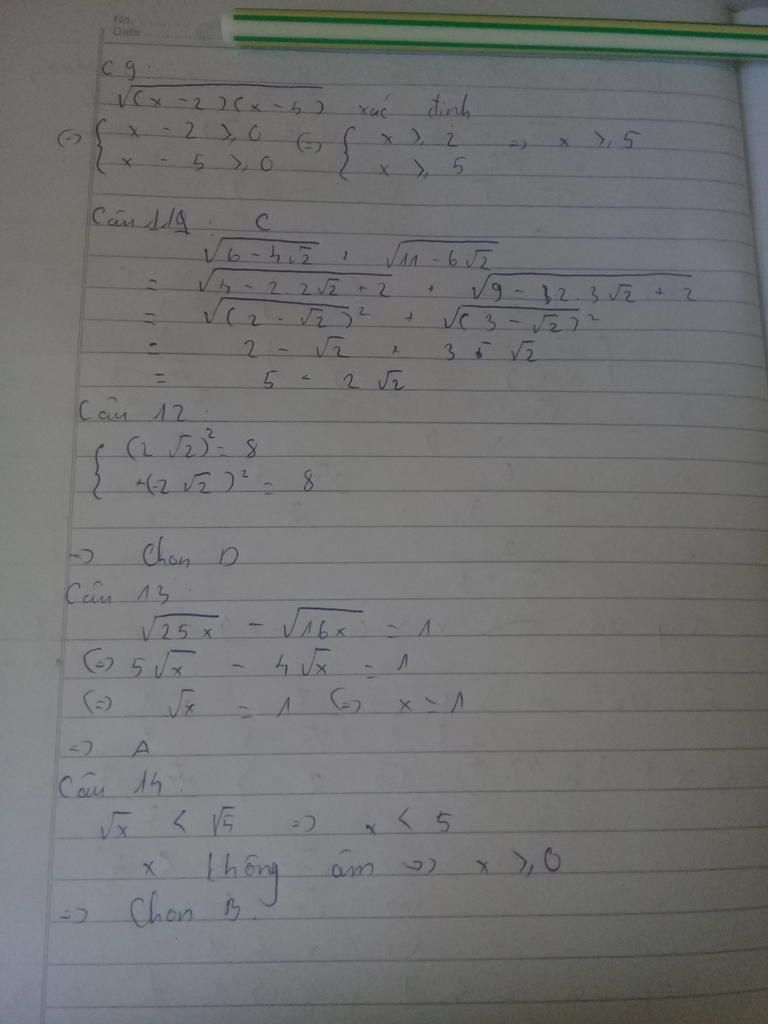 No.
Date
C 9:
√(x - 2)(x - 5) xác định
(=) { x - 2 ≥ 0 (=) { x ≥ 2 => x ≥ 5
x - 5 ≥ 0 x ≥ 5
Câu 119: C
√6 - 4√2 + √11 - 6√2
= √4 - 2.2√2 + 2 + √9 - 2.3√2 + 2
= √(2 - √2)² + √(3 - √2)²
= 2 - √2 + 3 - √2
= 5 - 2√2
Câu 12:
{ (2√2)² = 8
(-2√2)² = 8
=> Chọn D
Câu 13:
√25x - √16x = 1
(=) 5√x - 4√x = 1
(=) √x = 1 (=) x = 1
=> A
Câu 14:
√x < √5 => x < 5
x không âm => x ≥ 0
=> Chọn B.